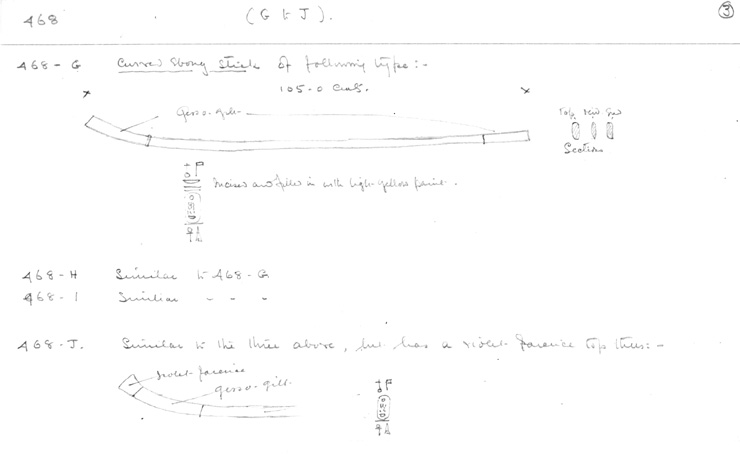 468 (G to J). 3
468-G Curved ebony stick of following type:-
105.0 Cms.
Gesso-gilt
Top Mid End
Sections
Incised and filled in with light yellow paint.
468-H Similar to 468-G
468-I Similar " " "
468-J. Similar to the three above, but has a violet faience top thus:-
violet faience
gesso-gilt